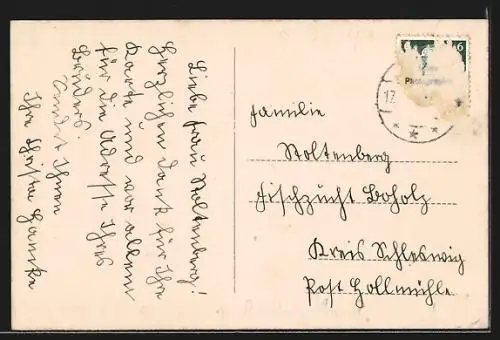 Liebe Frau Stoltenberg!
Herzlichen Dank für Ihre
Karte und vor allem
für die Adresse Ihres
Bruders.
Ihnen
Ihre Christa
Familie
Stoltenberg
Fischzucht Boholz
Kreis Schleswig
Post Hollmühle
6
Photographie
12